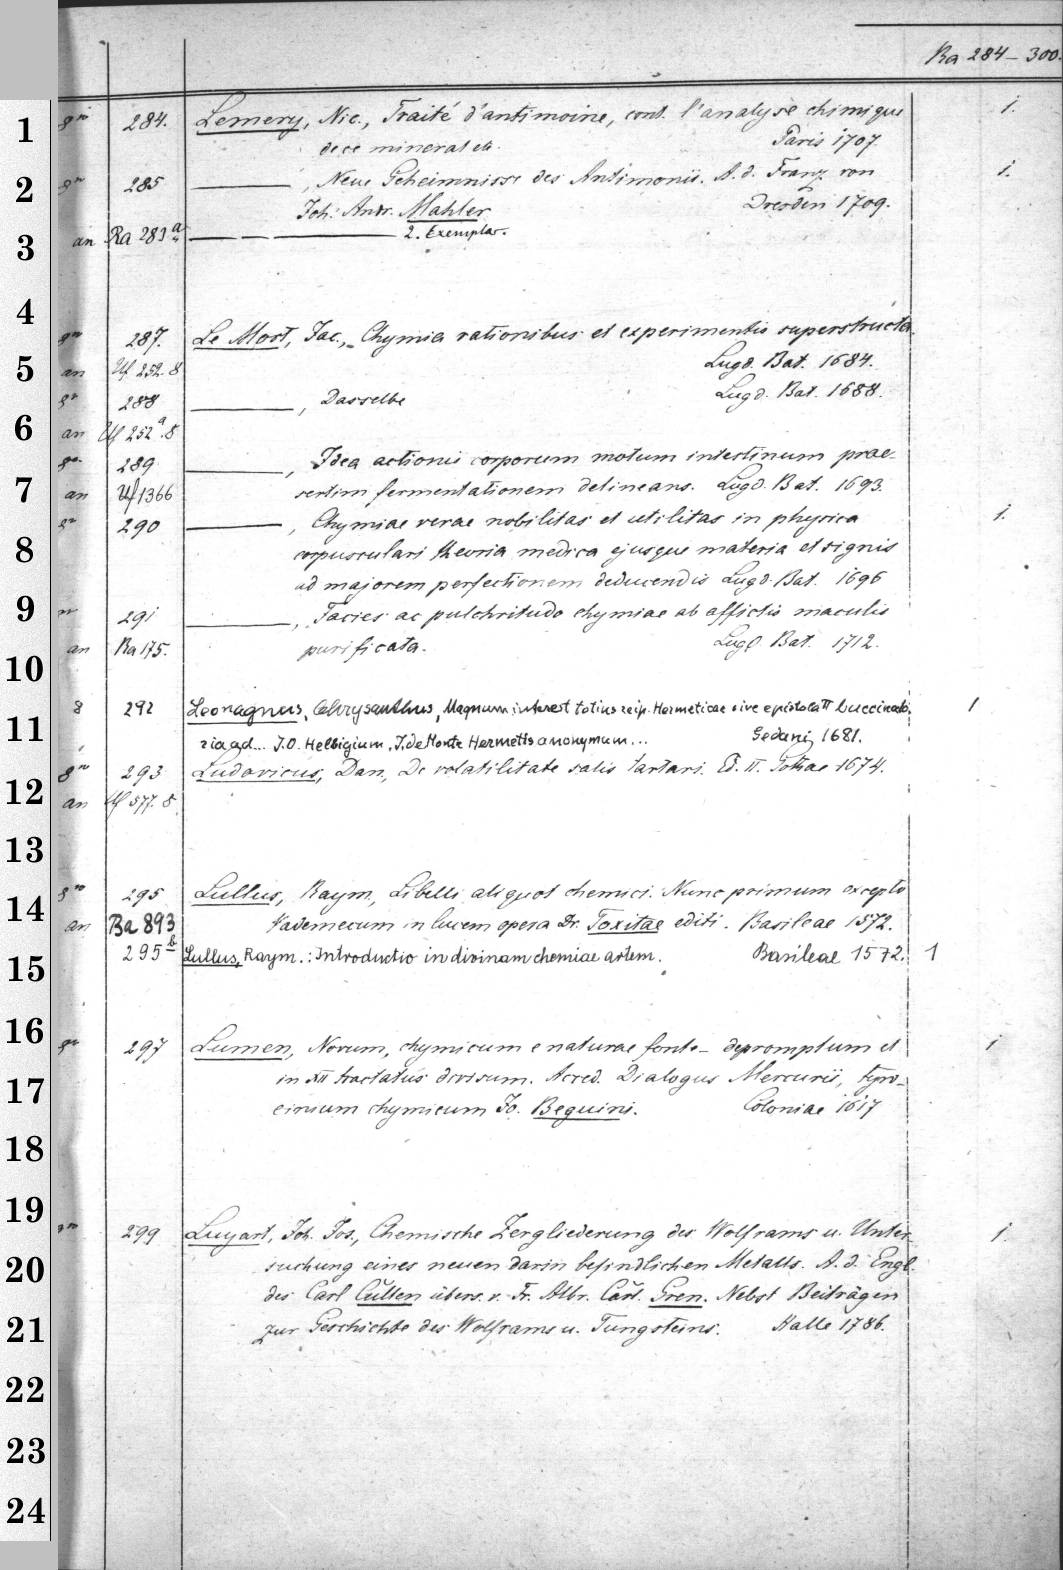 Ra 284–300.
1 8° 284. Lemery, Nic., Traité d'antimoine, cont. l'analyse chimique 1.
de ce mineral etc. Paris 1707.
2 8° 285 ———, Neue Geheimnisse des Antimonii. A. d. Franz. von 1.
Joh. Andr. Mahler Dresden 1709.
3 an Ra 283 a ——— 2. Exemplar.
4 8° 287. Le Mort, Jac., Chymia rationibus et experimentis superstructa.
5 an Uf 252. 8 Lugd. Bat. 1684.
8° 288 ———, Dasselbe Lugd. Bat. 1688.
6 an Uf 252 a. 8
8° 289 ———, Idea actionis corporum motum intestinum prae-
7 an Uf 1366 sertim fermentationem delineans. Lugd. Bat. 1693.
8° 290 ———, Chymiae verae nobilitas et utilitas in physica 1.
8 corpusculari theoria medica ejusque materia et signis
ad majorem perfectionem deducendis Lugd. Bat. 1696
9 291 ———, Facies ac pulchritudo chymiae ab affictis maculis
10 an Ra 175. purificata. Lugd. Bat. 1712.
11 8 292 Leonagnus, Chrysanthus, Magnum interest totius reip. Hermeticae sive epistola II buccinato- 1
ria ad... J.O. Helbigium, J. de Monte Hermetis anonymum... Gedani, 1681.
8° 293 Ludovicus, Dan., De volatilitate salis tartari. Ed. II. Gothae 1674.
12 an Uf 577. 8
13
14 8° 295 Lullus, Raym., Libelli aliquot chemici. Nunc primum excepto
an Ba 893 Vademecum in lucem opera Dr. Toxitae editi. Basileae 1572.
15 295 b Lullus, Raym.: Introductio in divinam chemiae artem. Basileae 1572. 1
16 8° 297 Lumen, Novum, chymicum e naturae fonte depromptum et 1
17 in XII tractatus divisum. Acced. Dialogus Mercurii, tyro-
cinium chymicum Jo. Beguini. Coloniae 1617
18
19 8° 299 Luyart, Joh. Jos., Chemische Zergliederung des Wolframs u. Unter- 1.
20 suchung eines neuen darin befindlichen Metalls. A. d. Engl.
des Carl Cullen übers. v. Fr. Albr. Carl. Gren. Nebst Beiträgen
21 zur Geschichte des Wolframs u. Tungsteins. Halle 1786.
22
23
24